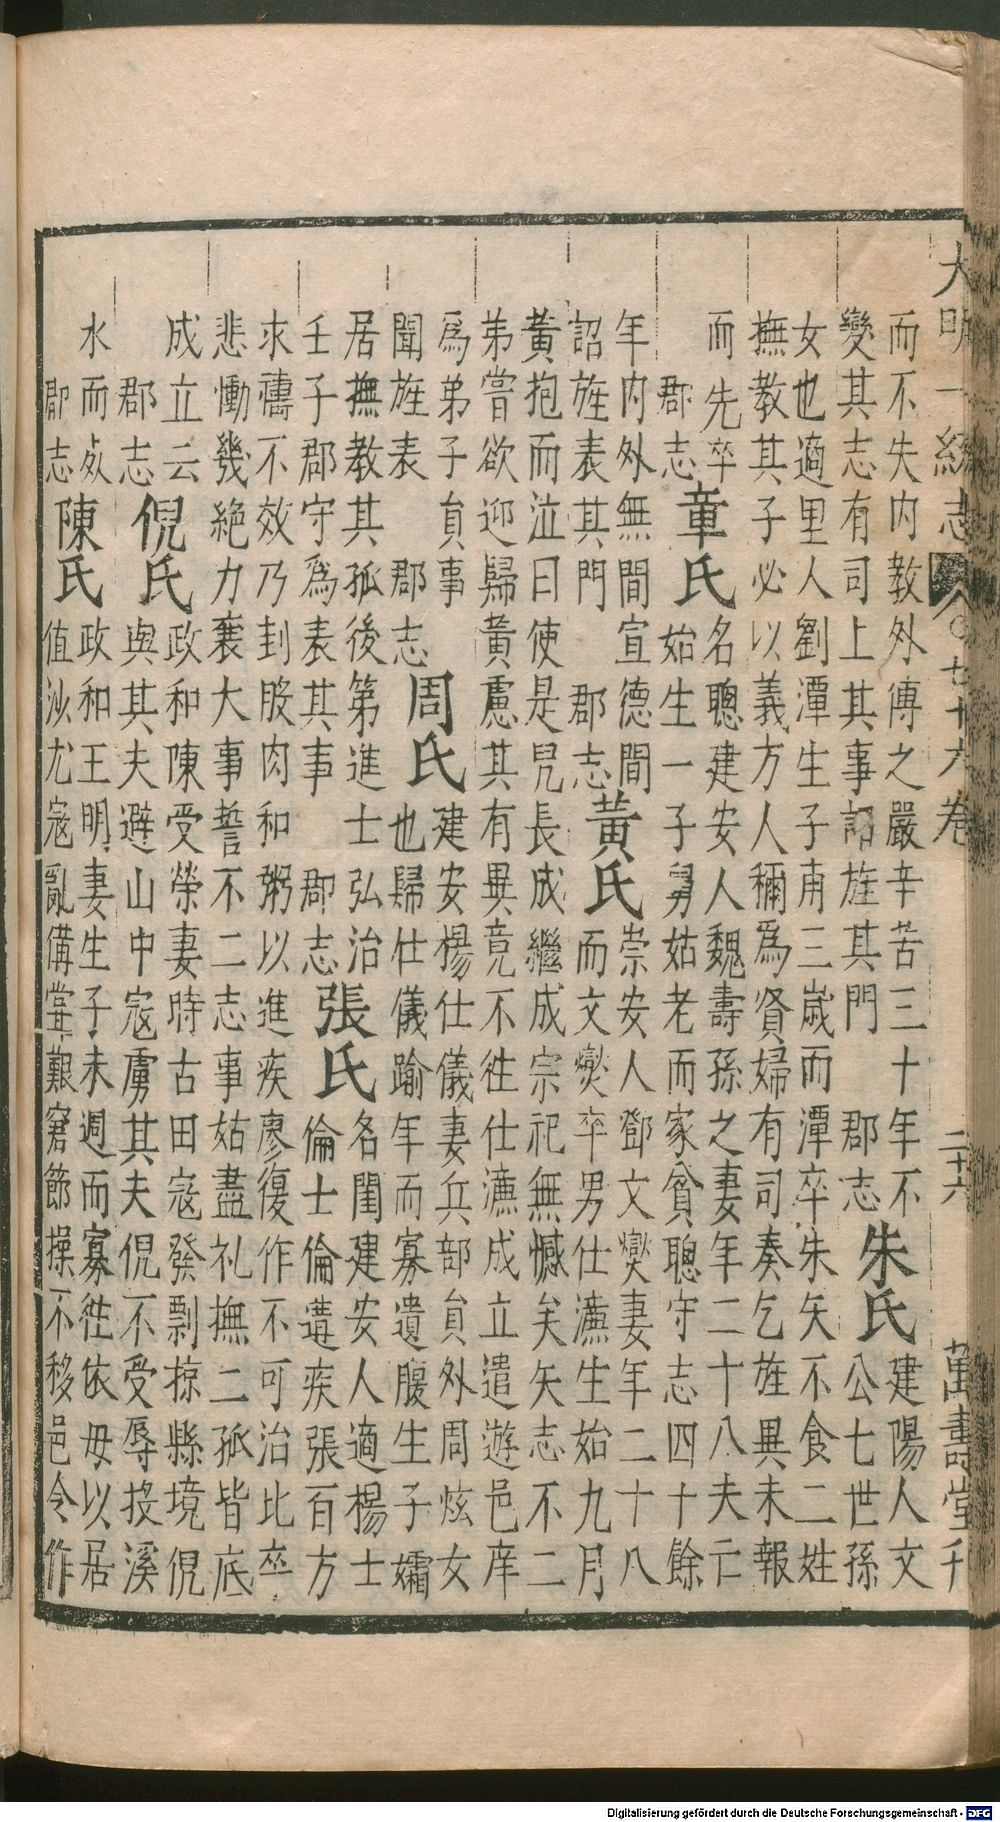 大明一統志 〇七十六卷 二十六 萬壽堂刊
而不失内教外傳之嚴辛苦三十年不
變其志有司上其事詔旌其門 郡志
朱氏
建陽人文
公七世孫
女也適里人劉潭生子甫三歲而潭卒朱矢不食二姓
撫教其子必以義方人稱爲賢婦有司奏乞旌異未報
而先卒
郡志
章氏
名聰建安人魏壽孫之妻年二十八夫亡
始生一子舅姑老而家貧聰守志四十餘
年内外無間宣德間
詔旌表其門 郡志
黃氏
崇安人鄧文爕妻年二十八
而文爕卒男仕濂生始九月
黃抱而泣曰使是兒長成繼成宗祀無憾矣矢志不二
弟嘗欲迎歸黃慮其有異竟不徃仕濂成立遣遊邑庠
爲弟子員事
聞旌表 郡志
周氏
建安楊仕儀妻兵部員外周炫女
也歸仕儀踰年而寡遺腹生子孀
居撫教其孤後第進士弘治
壬子郡守爲表其事 郡志
張氏
名閨建安人適楊士
倫士倫遘疾張百方
求禱不效乃刲股肉和粥以進疾廖復作不可治比卒
悲慟幾絶力襄大事誓不二志事姑盡礼撫二孤皆底
成立云
郡志
倪氏
政和陳受榮妻時古田寇發剽掠縣境倪
與其夫避山中寇虜其夫倪不受辱投溪
水而死
郡志
陳氏
政和王明妻生子未週而寡徃依母以居
值沙尤寇亂備甞艱窘節操不移邑令作
Digitalisierung gefördert durch die Deutsche Forschungsgemeinschaft - DFG